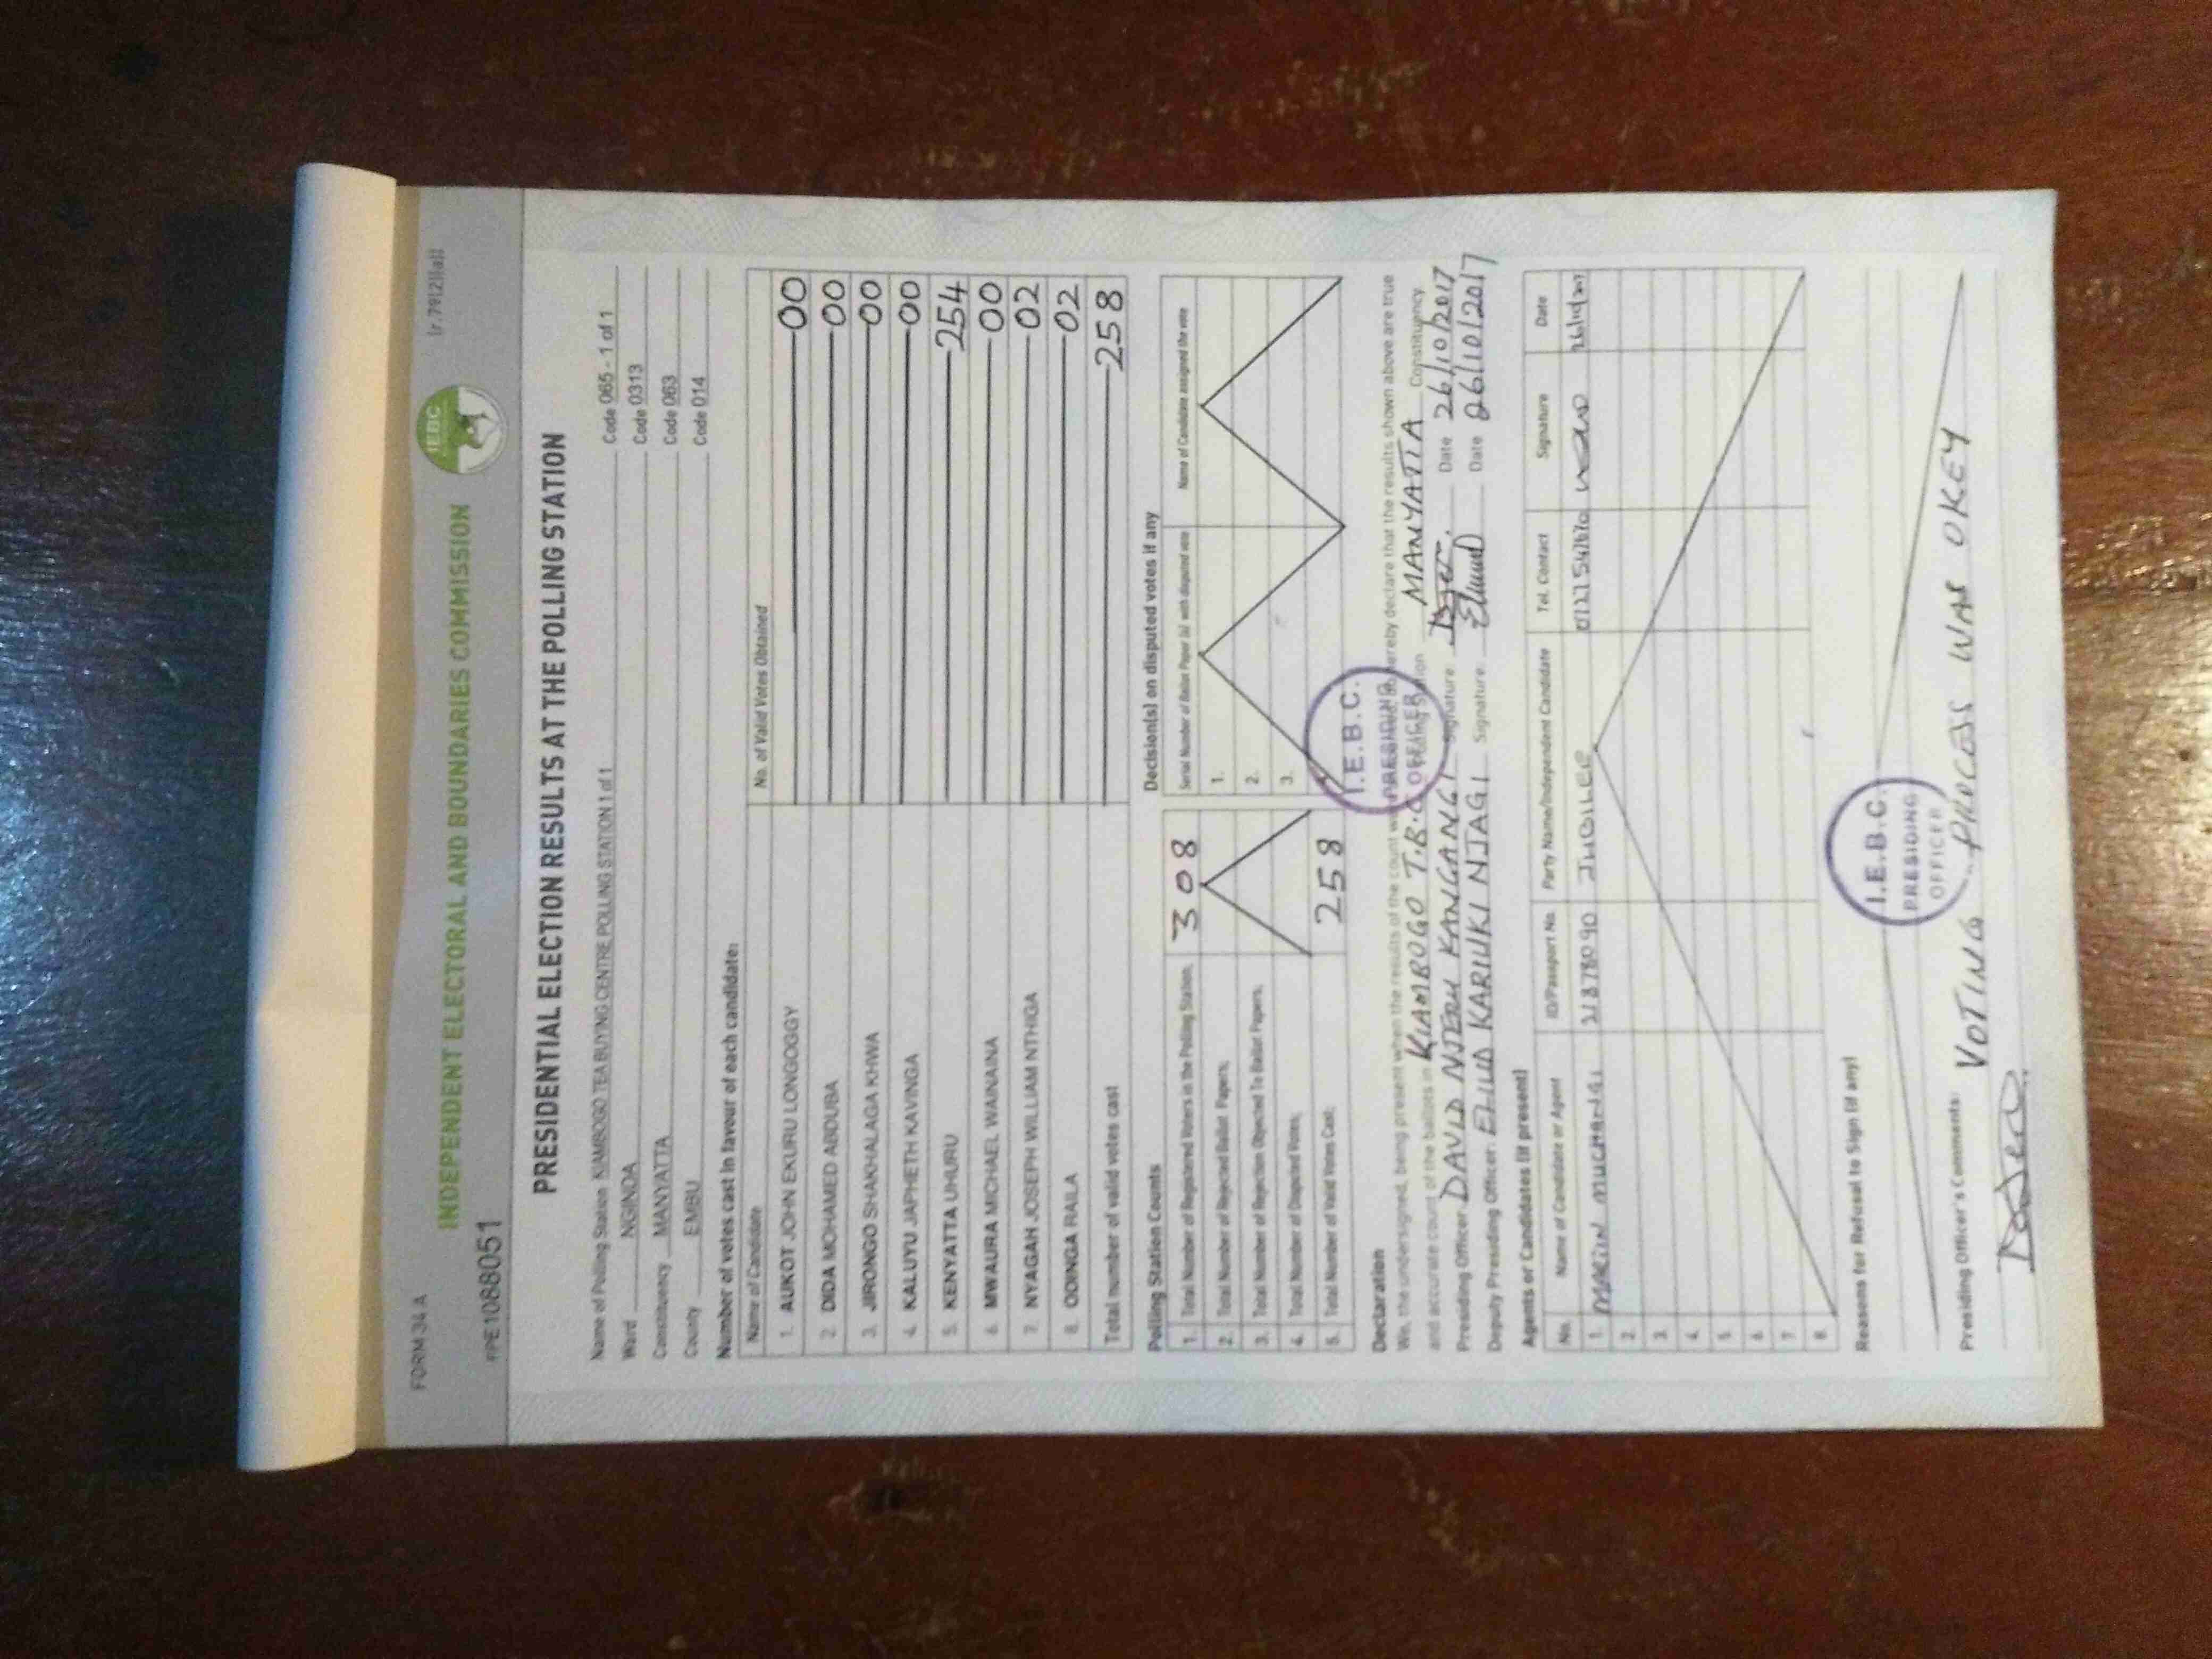 FORM 34 A
(r.79(2)(a))
INDEPENDENT ELECTORAL AND BOUNDARIES COMMISSION
IEBC
PPE1088051
PRESIDENTIAL ELECTION RESULTS AT THE POLLING STATION
Name of Polling Station KIAMBOGO TEA BUYING CENTRE POLLING STATION 1 of 1 Code 065 - 1 of 1
Ward NGINDA Code 0313
Constituency MANYATTA Code 063
County EMBU Code 014
Number of votes cast in favour of each candidate:
Name of Candidate No. of Valid Votes Obtained
1. AUKOT JOHN EKURU LONGOGGY 00
2. DIDA MOHAMED ABDUBA 00
3. JIRONGO SHAKHALAGA KHWA 00
4. KALUYU JAPHETH KAVINGA 00
5. KENYATTA UHURU 254
6. MWAURA MICHAEL WAINAINA 00
7. NYAGAH JOSEPH WILLIAM NTHIGA 02
8. ODINGA RAILA 02
Total number of valid votes cast 258
Polling Station Counts
1. Total Number of Registered Voters in the Polling Station. 308
2. Total Number of Rejected Ballot Papers.
3. Total Number of Rejection Objected To Ballot Papers.
4. Total Number of Disputed Votes.
5. Total Number of Valid Votes Cast. 258
Decision(s) on disputed votes if any
Serial Number of Ballot Paper (s) with disputed vote Name of Candidate assigned the vote
1.
2.
3.
Declaration
We, the undersigned, being present when the results of the count hereby declare that the results shown above are true
and accurate count of the ballots in KIAMBOGO T.B.C MANYATTA Constituency
Presiding Officer DAVID NJERU KANGANGI Signature Date 26/10/2017
Deputy Presiding Officer: ELIUD KARIUKI NJAGI Signature Eliud Date 26/10/2017
I.E.B.C.
PRESIDING
OFFICER
Agents or Candidates (if present)
No. Name of Candidate or Agent ID/Passport No. Party Name/Independent Candidate Tel. Contact Signature Date
1. JUBILEE
2.
3.
4.
5.
6.
7.
8.
Reasons for Refusal to Sign (if any)
I.E.B.C.
PRESIDING
OFFICER
Presiding Officer's Comments: VOTING PROCESS WAS OKEY